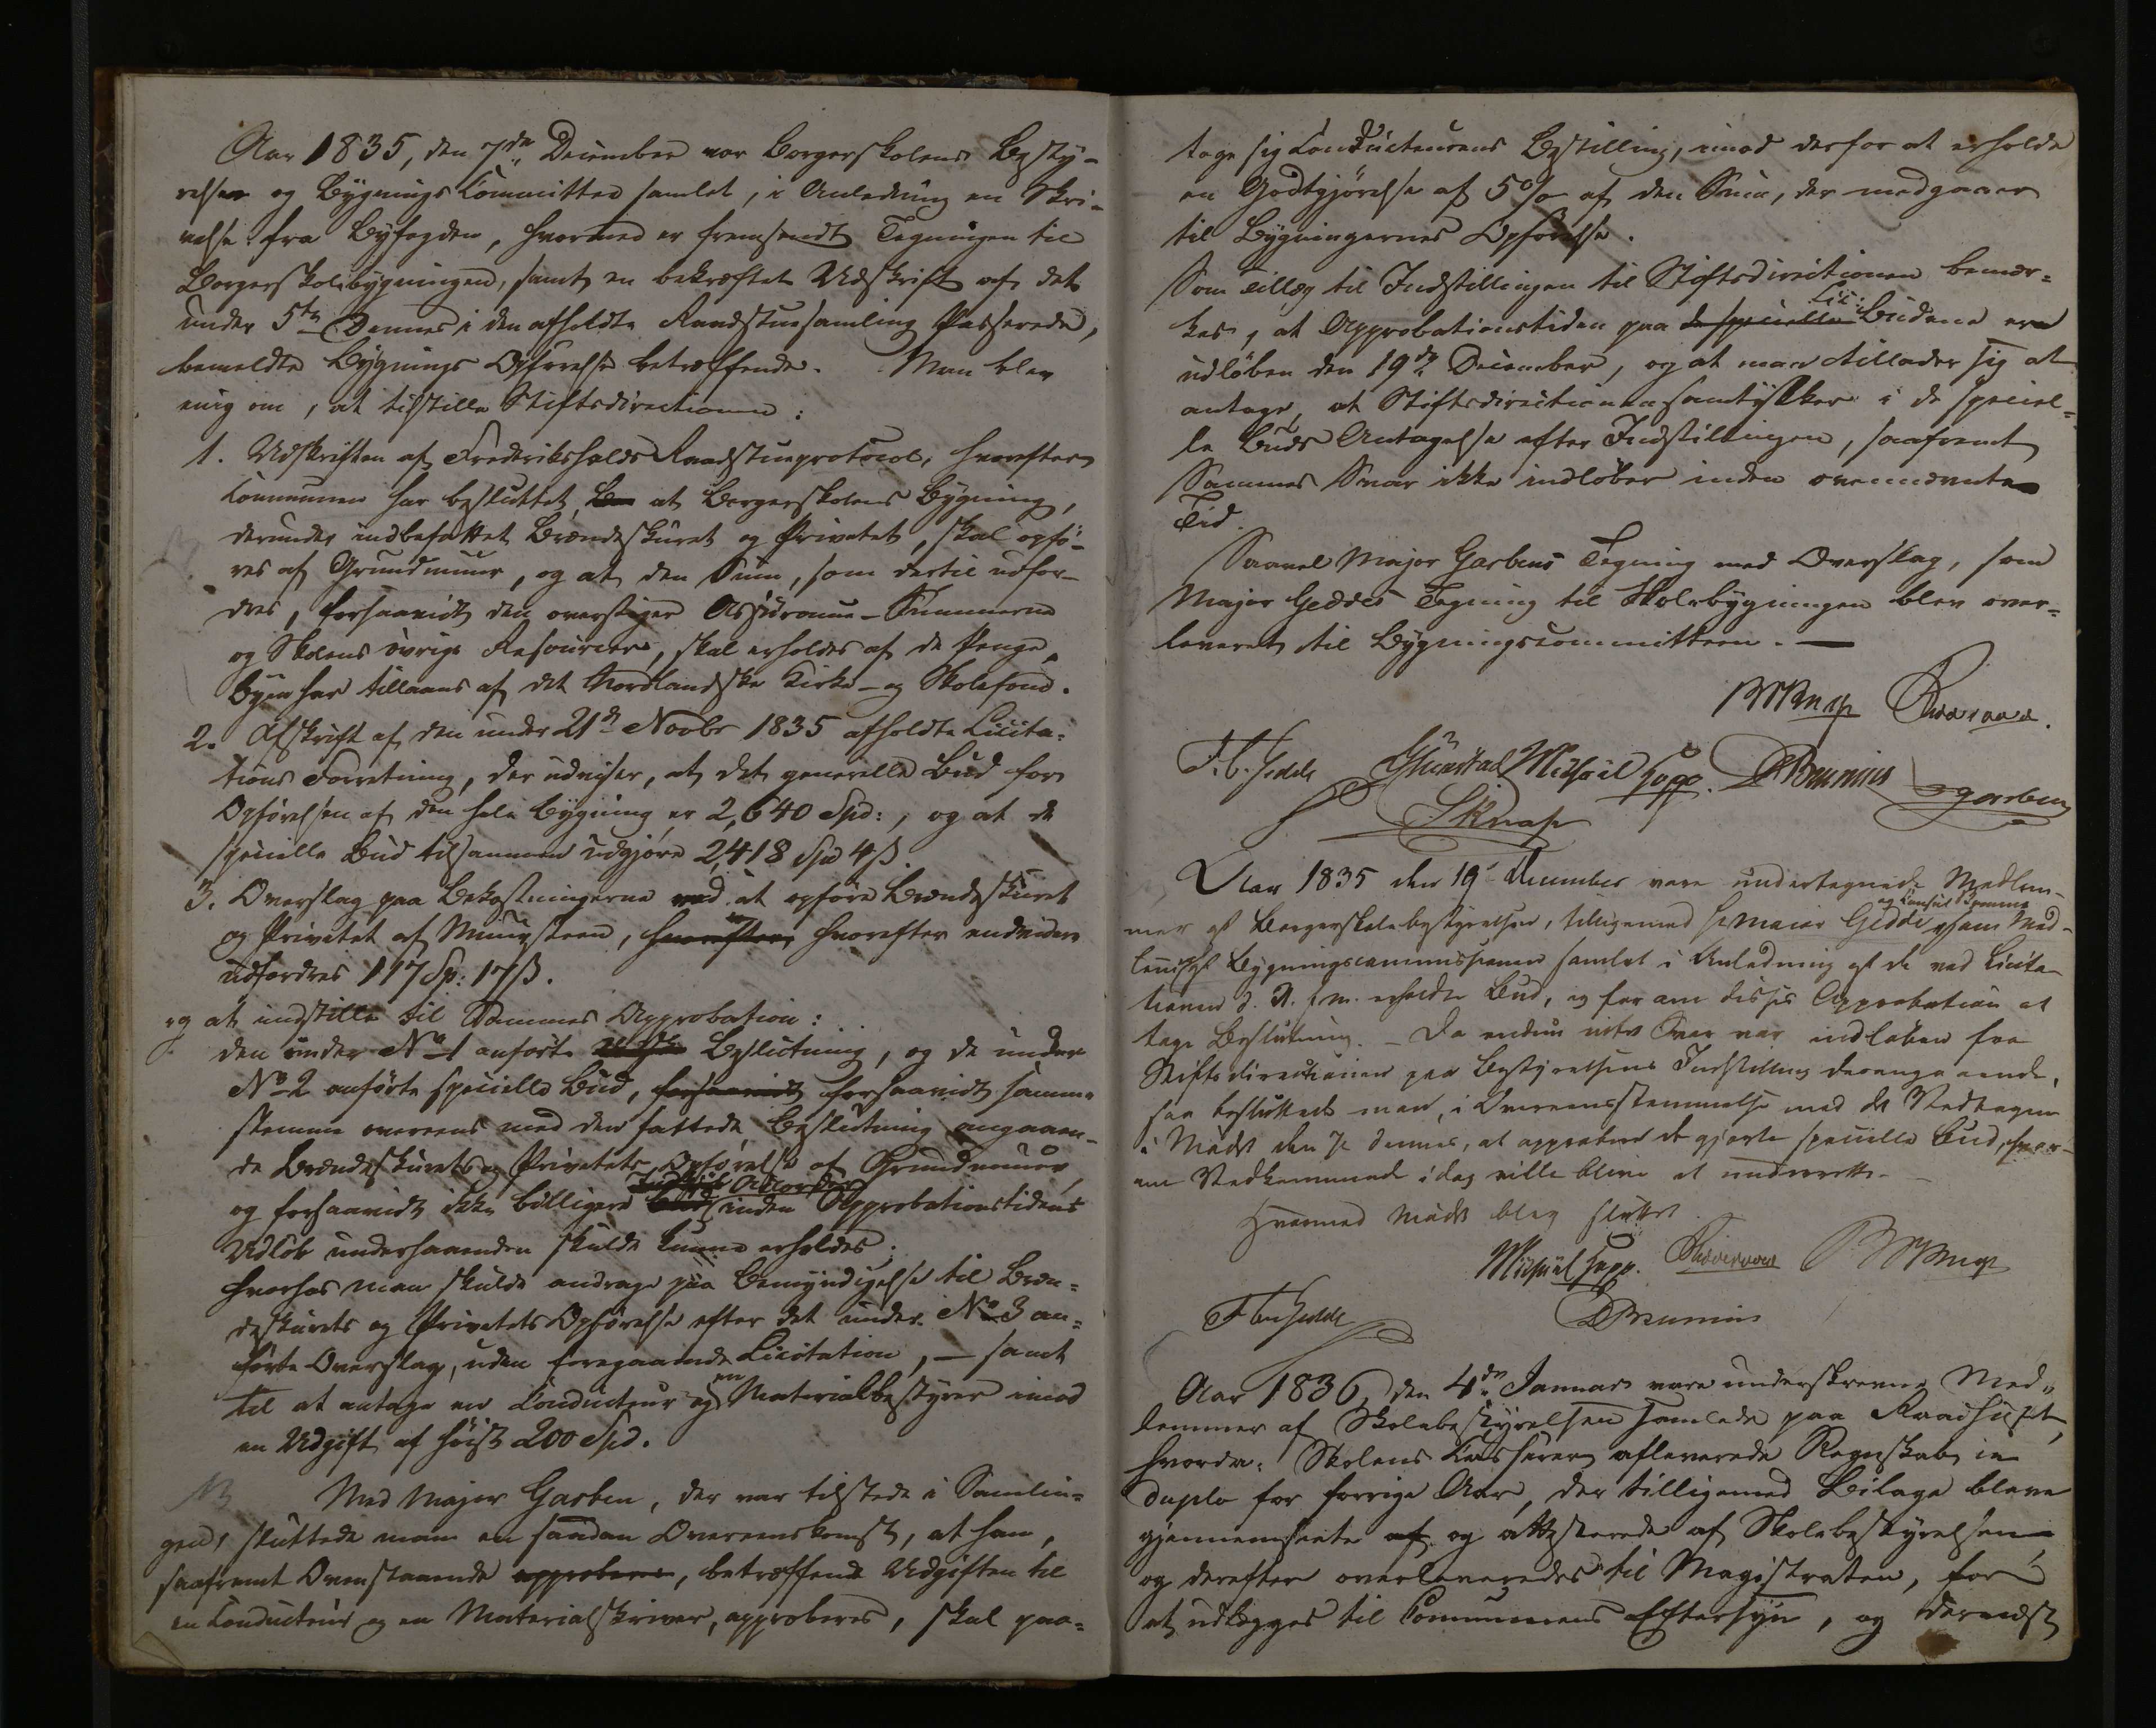 Aar 1835, den 7de December var Borgerskolens Besty-
relse og Bygnings Committee samlet, i Anledning en Skri-
velse fra Byfogden, hvormed er fremsendt Tegningen til
Borgerskolebygningen, samt en bekræftet Udskrift af det
under 5te Dennes i den afholdte Raadstuesamling Passerede,
bemeldte Bygnings Opførelse betræffende. Man blev
enig om, at tilstille Stiftsdirectionen:
1. Udskriften af Frederikshalds Raadstueprotocol, hvorefter
Communen har besluttet, at Borgerskolens Bygning,
derunder indbefattet Brændeskuret og Privetet, skal opfø-
res af Grundmuur, og at den Sum, som dertil udfor-
dres, forsaavidt den overstiger Assurance-Summerne
og Skolens øvrige Resourcer, skal erholdes af de Penge,
Byen har tillaans af det Nordlandske Kirke- og Skolefond.
2. Afskrift af den under 21de Novbr 1835 afholdte Licita-
tions Forretning, der udviser, at det generelle Bud for
Opførelsen af den hele Bygning er 2,640 Spd:, og at de
specielle Bud tilsammen udgjøre 2,418 Spd 4 ß.
3. Overslag paa Bekostningerne ved at opføre Brændeskuret
og Privetet af Muursteen, hvorefter, hvorefter endvidere
udfordres 117 Sp: 17 ß.
og at indstille til Sammes Approbation:
den under No 1 anførte Beslutning, og de under
No 2 anførte specielle Bud, forsaavidt forsaavidt samme
stemme overeens med den fattede Beslutning angaaen-
de Brændeskurets og Privetets Opførelse af Grundmuur,
og forsaavidt ikke billigere Bud inden Approbationstidens
Udløb underhaanden skulde kunne erholdes;
hvorhos man skulde andrage paa Bemyndigelse til Bræn-
deskurets og Privetets Opførelse efter det under No 3 an-
førte Overslag, uden foregaaende Licitation, – samt
til at antage en Conducteur og en Materialbestyrer imod
en Udgift af høist 200 Spd.
NB Med Major Garben, der var tilstede i Samlin-
gen, sluttede man en saadan Overeenskomst, at han,
saafremt Ovenstaaende approberes, betræffende Udgiften til
en Conducteur og en Materialskriver, approberes, skal paa-
tage sig Conducteurens Bestilling, imod derfor at erholde
en Godtgjørelse af 5 % af den Sum, der medgaaer
til Bygningernes Opførelse.
Som Tillæg til Indstillingen til Stiftsdirectionen bemær-
kes, at Approbationstiden paa de specielle Lic: Budene er
udløben den 19de December, og at man tillader sig at
antage, at Stiftsdirectionen samtykker i de speciel-
le Buds Antagelse efter Indstillingen, saafremt
Sammes Svar ikke indløber inden ovennævnte
Tid.
Saavel Major Garbens Tegning med Overslag, som
Major Geddes Tegning til Skolebygningen blev over-
leveret til Bygningscommitteen. —
Michael Hopp. Brunius Garben
Knap
Aar 1835 den 19 December vare undertegnede Medlem-
mer af Borgerskolebestyrelsen, tilligemed Hr Maior Gedde og Consul Brunius som Med-
lem af Bygningscommissionen samlet i Anledning af de ved Licita-
tionen d. 21. f. m. erholdte Bud, og for om disses Approbation at
tage Beslutning. – Da endnu intet Svar var indløben fra
Stiftsdirectionen paa Bestyrelsens Indstilling derangaaende,
saa besluttede man, i Overeensstemmelse med det Vedtagne
i Mødet den 7de dennes, at approbere de gjorte specielle Bud, hvor-
om Vedkommende idag ville blive at underrette. –
Hvormed Mødet blev sluttet.
Michael Hopp.
Brunius
Aar 1836, den 4de Januar vare underskrevne Med-
lemmer af Skolebestyrelsen samlede paa Raadhuset,
hvorda Skolens Kasserer afleverede Regnskab in
duplo for forrige Aar, der tilligemed Bilage bleve
gjennemseete af og attesterede af Skolebestyrelsen,
og derefter overleveredes til Magistraten, for
at udlægges til Communens Eftersyn, og dernæst